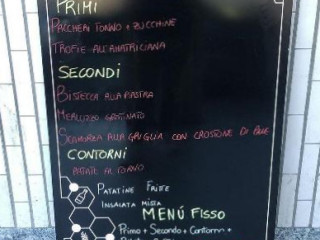 PRIMI
PACCHERI TONNO + ZUCCHINE
TROFIE ALL'AMATRICIANA
SECONDI
BISTECCA ALLA PIASTRA
MERLUZZO GRATINATO
SCAMORZA ALLA GRIGLIA CON CROSTONE DI PANE
CONTORNI
PATATE AL FORNO
PATATINE FRITTE
INSALATA MISTA
MENÚ FISSO
Primo + Secondo + Contorno +